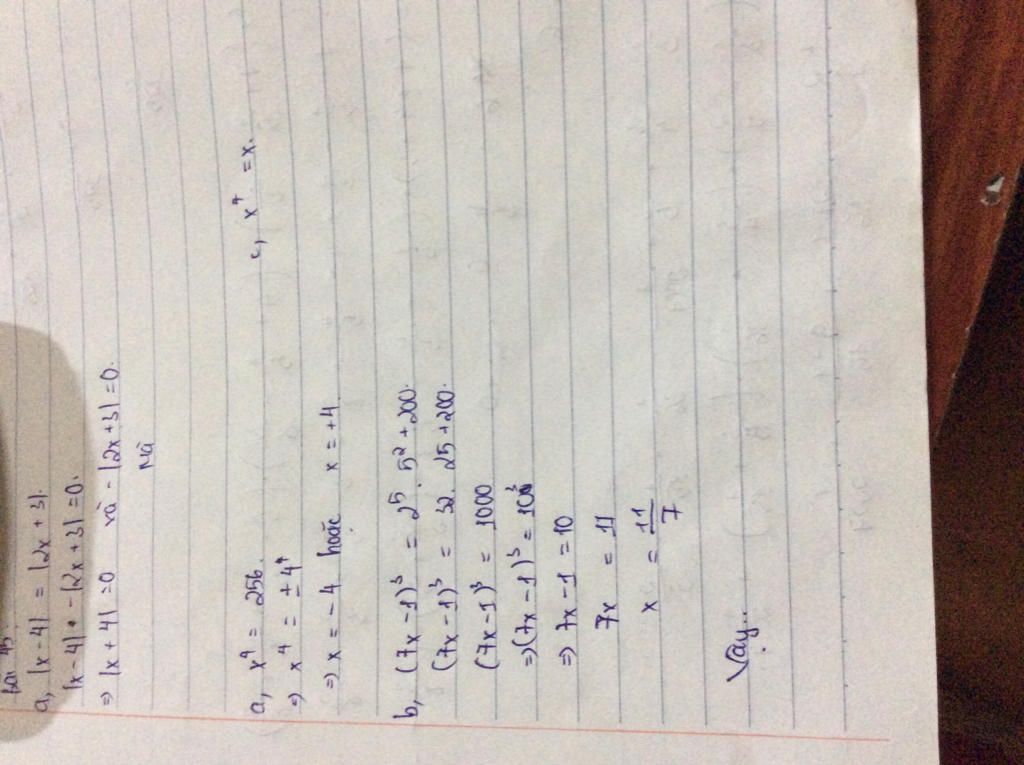 bài 45
a, |x - 4| = |2x + 3|.
|x - 4| - |2x + 3| = 0.
=> |x + 4| = 0 và - |2x + 3| = 0.
Mà
a, x⁴ = 256.
=> x⁴ = ± 4⁴
=> x = - 4 hoặc x = +4
b, (7x - 1)³ = 2⁵ . 5² + 200.
(7x - 1)³ = 32 . 25 + 200.
(7x - 1)³ = 1000
=> (7x - 1)³ = 10³
=> 7x - 1 = 10
7x = 11
x = 11/7
Vậy...
c, x⁴ = x.